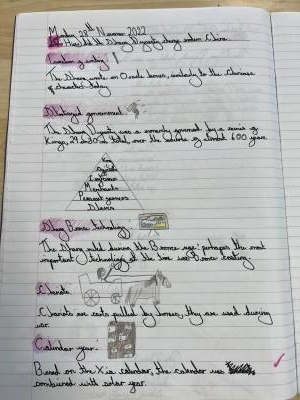 Monday 28th November 2022
LO: How did the Shang Dynasty change ancient China
The Shang wrote on Oracle bones, similarly to the Chinese
of                 today
The Shang Dynasty was a monarchy governed by a series of
Kings, 29 and     in total, over the       of almost 600 years.
King
Craftsmen
Merchants
Peasant farmers
Slaves
Shang Bronze technology
The Shang ruled during the Bronze age; perhaps the most
important technology at the time was Bronze casting.
Chariots
Chariots are carts pulled by horses, they are used during
war.
Calendar year:
Based on the Xia calendar, the calendar was
combined with solar year.